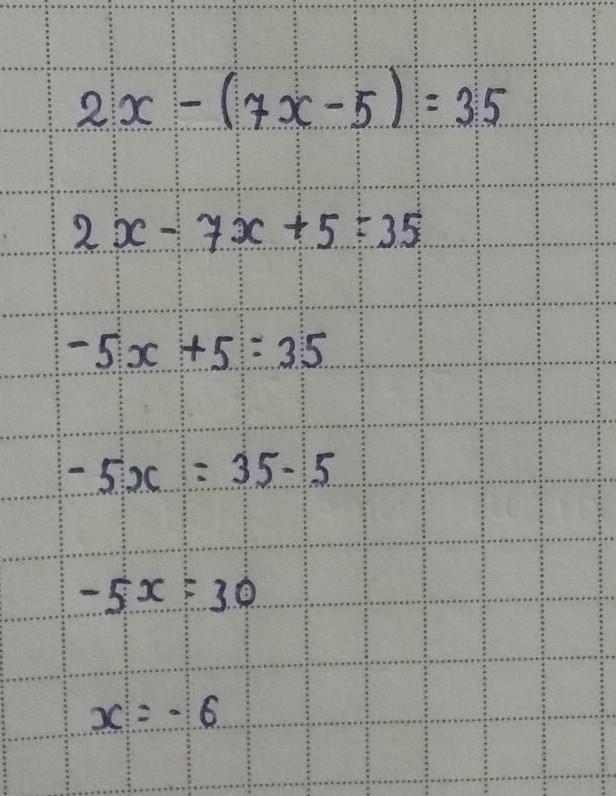 2x - (7x - 5) = 35
2x - 7x + 5 = 35
-5x + 5 = 35
-5x = 35 - 5
-5x = 30
x = - 6